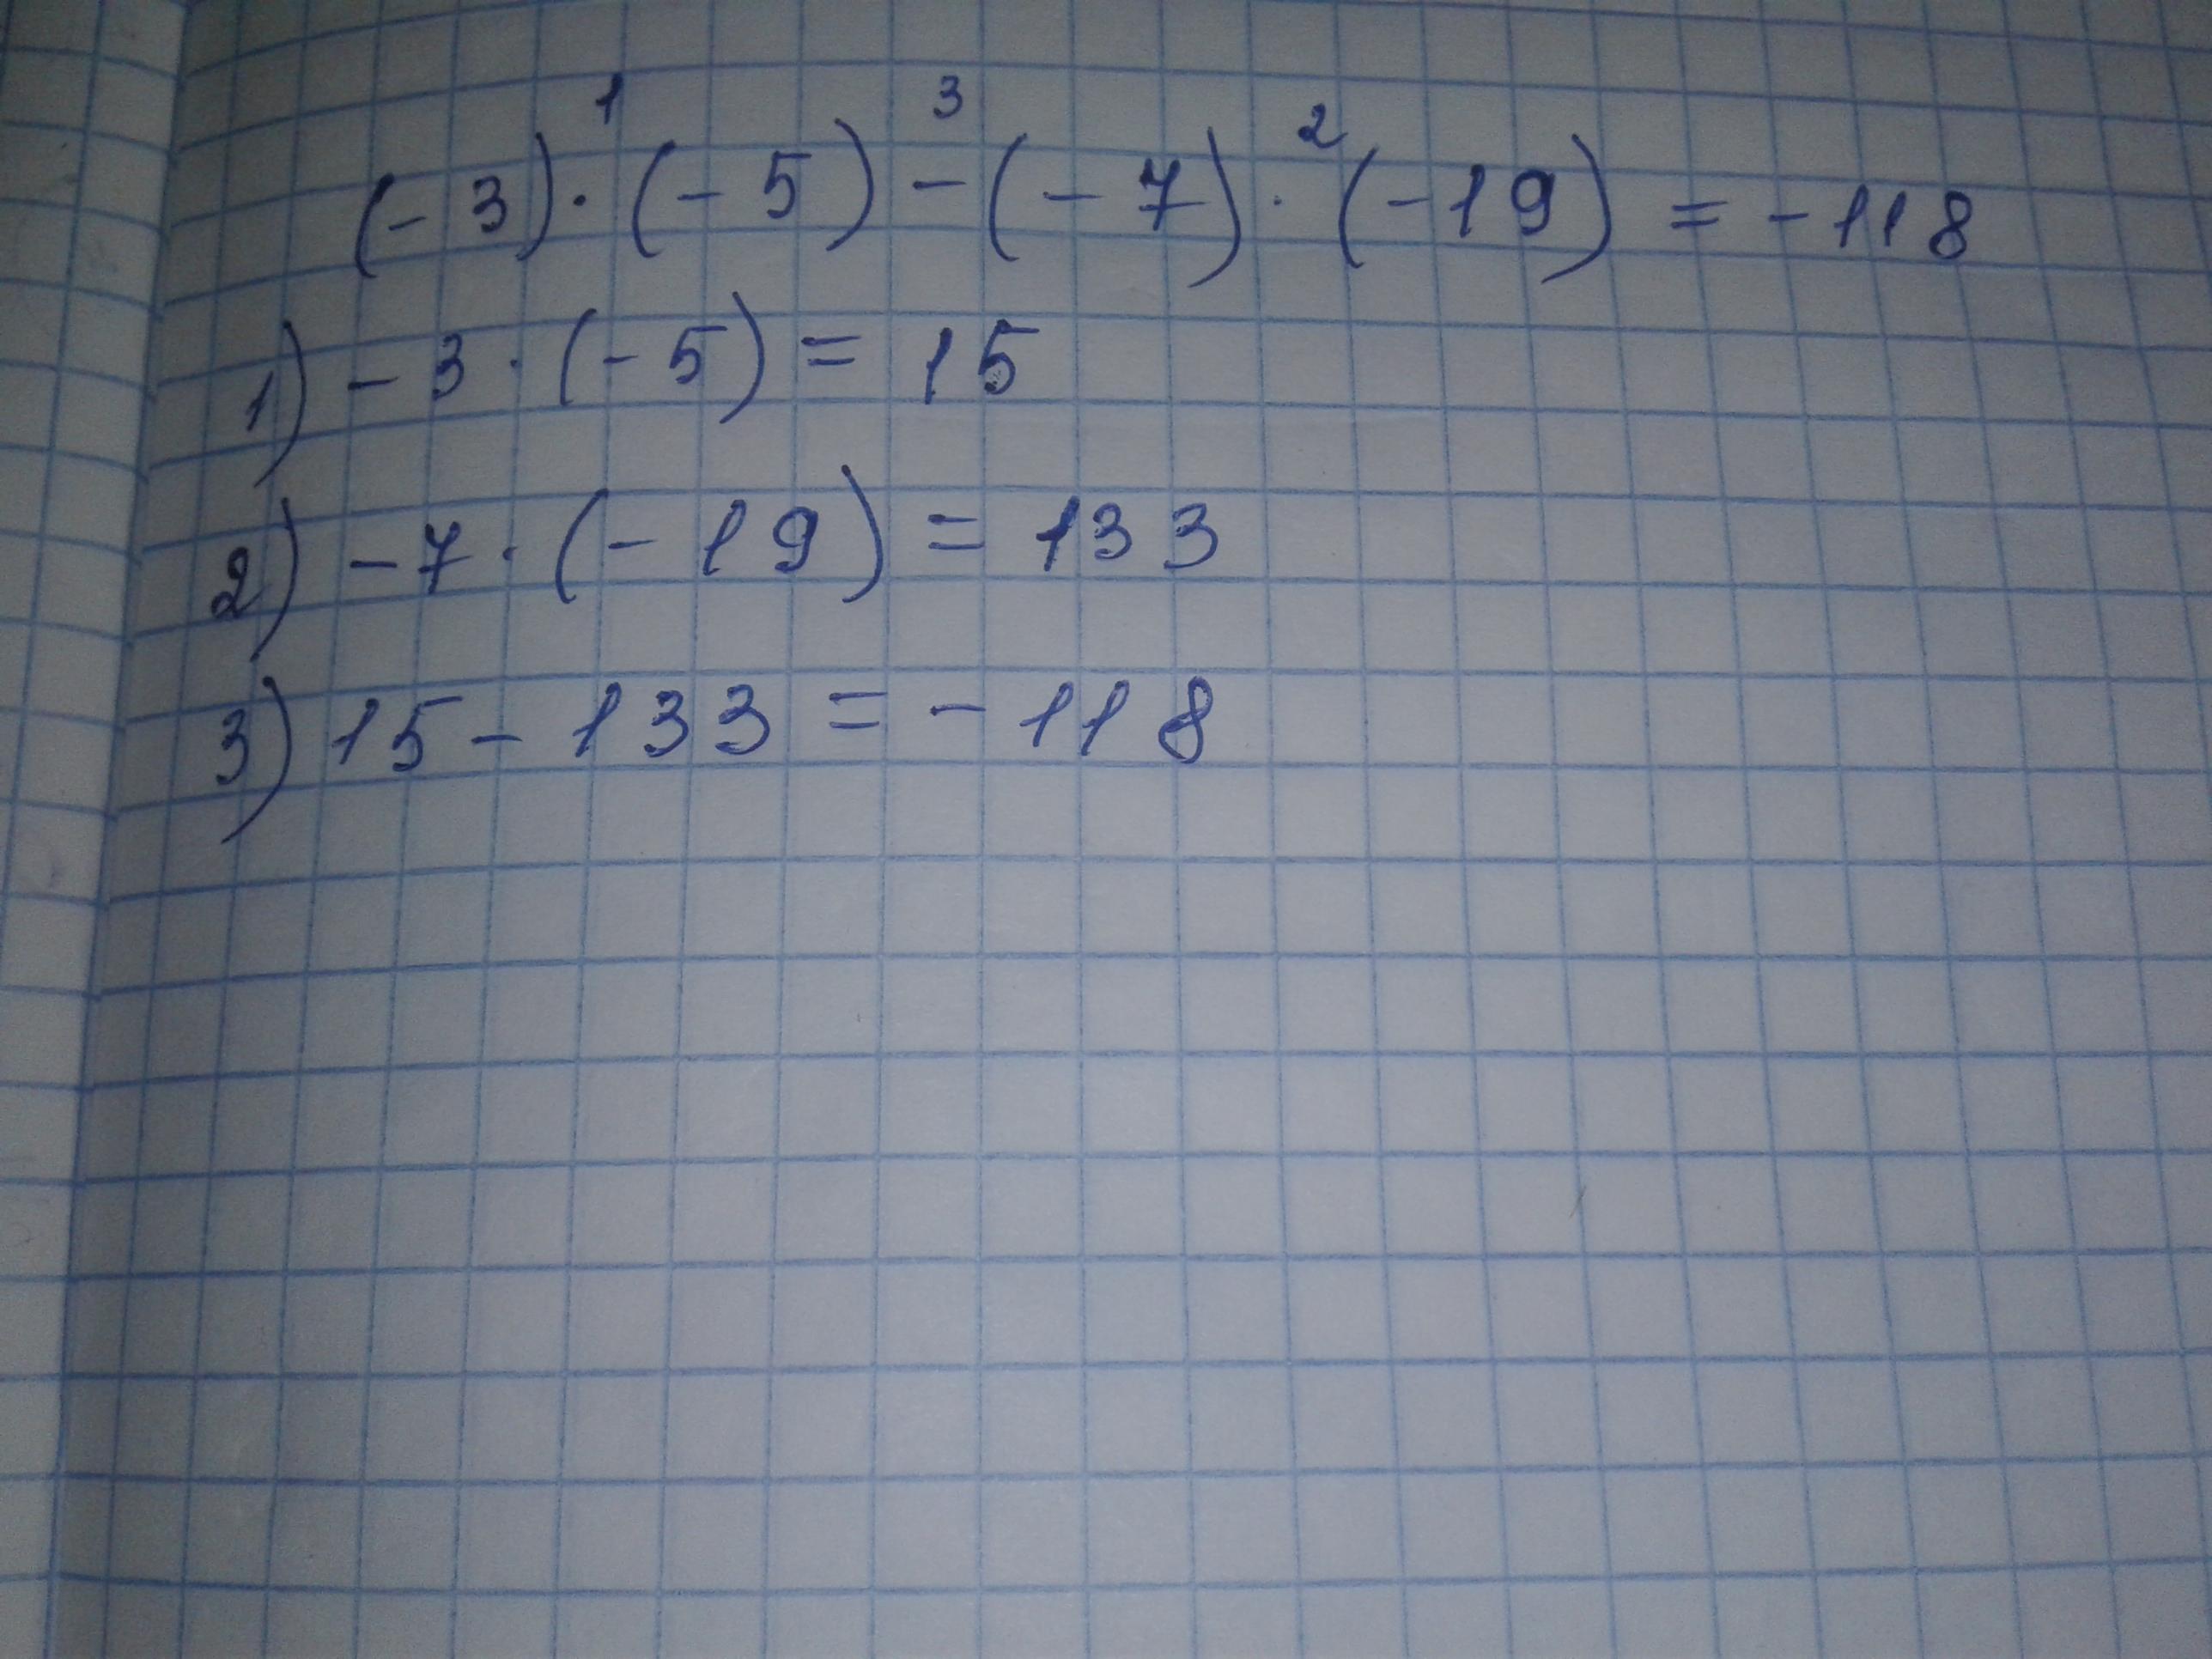 1 3 2
(-3)·(-5)-(-7)·(-19)=-118
1) -3·(-5)=15
2) -7·(-19)=133
3) 15-133=-118